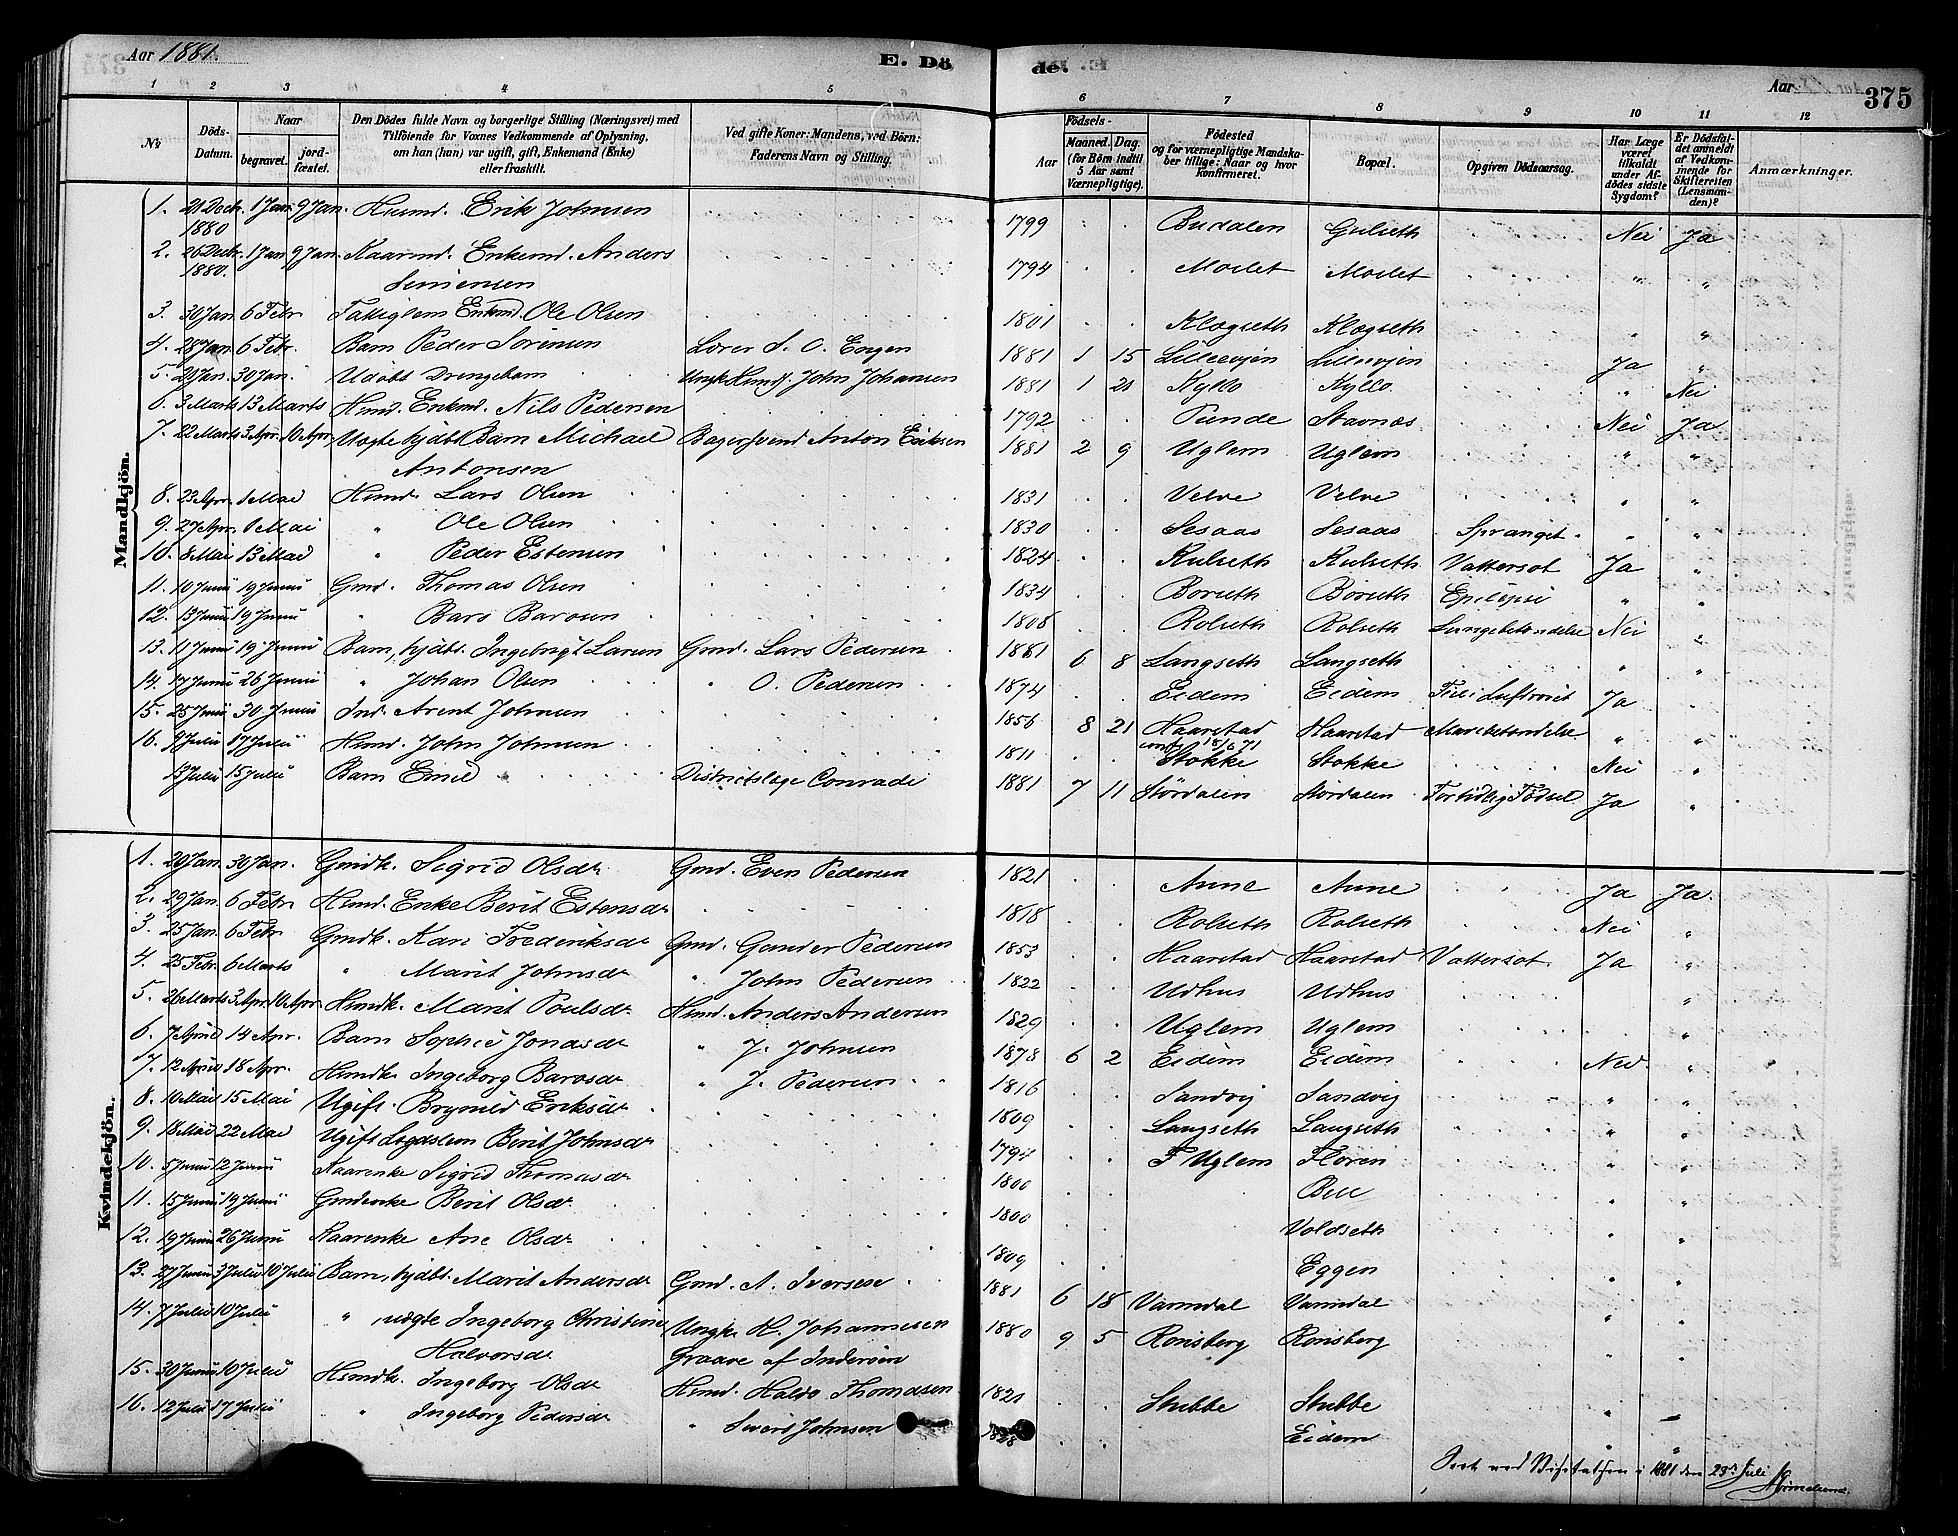 Aar 1881. E. Dö de. Aar 375
1 2 3 4 5 6 7 8 9 10 11 12
№ Döds-Datum. Naar begravet. jord-fæstet. Den Dödes fulde Navn og borgerlige Stilling (Næringsvei) med Tilföiende for Voxnes Vedkommende af Oplysning, om han (hun) var ugift, gift, Enkemand (Enke) eller fraskilt. Ved gifte Koner: Mandens, ved Börn: Faderens Navn og Stilling. Födsels- Aar Maaned. Dag. (for Börn indtil 5 Aar samt Værnepligtige). Födested og for værnepligtige Mandskaber tillige: Naar og hvor konfirmeret. Bopæl. Opgiven Dödsaarsag. Har Læge været tilkaldt under Afdödes sidste Sygdom? Er Dödsfaldet anmeldt af Vedkommende for Skifteretten (Lensmanden)? Anmærkninger.
Mandkjön.
1. 21 Decbr. 1880 1 Jan. 9 Jan. Husmd. Erik Johnsen 1799 Budalen Gulseth Nei Ja
2. 26 Decbr. 1880. 1 Jan 9 Jan. Kaarmd. Enkemd. Anders 1794 Moslet Moslet " "
Simensen
3. 30 Jan. 6 Febr Fattiglem Enkmd. Ole Olsen 1801 Klægseth Klægseth " "
4. 28 Jan. 6 Febr. Barn Peder Sörensen Lærer S. O. Engen 1881 1 15 Lilleevjen Lilleevjen Ja "
5. 29 Jan. 30 Jan. Udöbt Drengebarn Ungk Husmd. John Johansen 1881 1 21 Kylló Kylló " Nei
6. 3 Marts 13 Marts Husmd. Enkmd. Nils Pedersen 1792 Punde Stavnæs Nei Ja
7. 22 Marts 3 Apr. 10 Apr Uægte hjdbt Barn Michael Bagersvend Anton Eriksen 1881 2 9 Uglem Uglem " "
Antonsen
8. 23 Apr. 1 Mai Husmd. Lars Olsen 1831 Velve Velve " "
9. 27 Apr. 1 Mai " Ole Olsen 1830 Sesaas Sesaas Spranget. " "
10. 8 Mai 13 Mai " Peder Estensen 1824 Kulseth Kulseth Vattersot Ja "
11. 10 Juni 19 Juni Gmd. Thomas Olsen 1834 Borseth Borseth Epilepsi " "
12. 13 Juni 19 Juni " Bars Barosen 1808 Rolseth Rolseth Lungebetændelse Nei "
13. 11 Juni 19 Juni Barn, hjdbt. Ingebrigt Larsen Gmd. Lars Pedersen 1881 6 8 Langseth Langseth " "
14. 17 Juni 26 Juni " Johan Olsen " O. Pedersen 1874 Eidem Eidem Ja
15. 25 Juni 30 Juni Ind. Arent Johnsen 1856 8 21 Haarstad Haarstad Mavebetændelse " "
16. 9 Juli 17 Juli Husmd. John Johnsen 1811 Stokke Stokke Nei "
13 Juli 15 Juli Barn Emil Districtslæge Conradi 1881 7 11 Stördalen Stördalen Fortidlig Födsel Ja "
Kvindekjön.
1. 20 Jan. 30 Jan. Gmdk. Sigrid Olsdr Gmd. Even Pedersen 1821 Aune Aune Ja Ja
2. 29 Jan 6 Febr Husmd. Enke Berit Estensdr 1818 Rolseth Rolseth Nei "
3. 25 Jan. 6 Febr Gmdk. Kari Frederiksdr Gmd. Gunder Pedersen 1853 Haarstad Haarstad Vattersot. Ja "
4. 25 Febr. 6 Marts " Marit Johnsdr " John Pedersen 1822 Udhus Udhus "
5. 26 Marts 3 Apr. 10 Apr Husmdk. Marit Poulsdr Husmd. Anders Andersen 1829 Uglem Uglem "
6. 7 April 14 Apr. Barn Sophie Jonasdr " J. Johnsen 1878 6 2 Eidem Eidem Nei "
7. 12 April 18 Apr. Husmdk Ingeborg Barosdr " J. Pedersen 1816 Sandvig Sandvig " "
8. 10 Mai 15 Mai Ugift. Bryndil Eriksdr 1809 Langseth Langseth " "
9. 18 Mai 22 Mai Ugift Lægdslem Berit Johnsdr 1794 F Uglem Floren " "
10. 5 Juni 12 Juni Kaarenke Sigrid Thomasdr 1800 Bell " "
11. 15 Juni 19 Juni Gmdenke Berit Olsdr 1800 Voldseth " "
12. 19 Juni 26 Juni Kaarenke Ane Olsdr 1809 Eggen " "
13. 27 Juni 3 Juli 10 Juli Barn, hjdbt. Marit Andersdr Gmd. A. Iversen 1881 6 18 Varmdal Varmdal " "
14. 7 Juli 10 Juli " uægte Ingeborg Christine Ungk. H. Johannesen 1880 9 5 Ronsberg Ronsberg " "
Halvorsdr Graave af Inderöen
15. 30 Juni 10 Juli Husmdk. Ingeborg Olsdr Husmd. Haldo Thomasen 1821 Stubbe Stubbe "
16. 12 Juli 17 Juli " Ingeborg Pedersdr " Sivert Johnsen 1828 Eidem " "
Seet ved Visitatsen i 1881 den 23de Juli